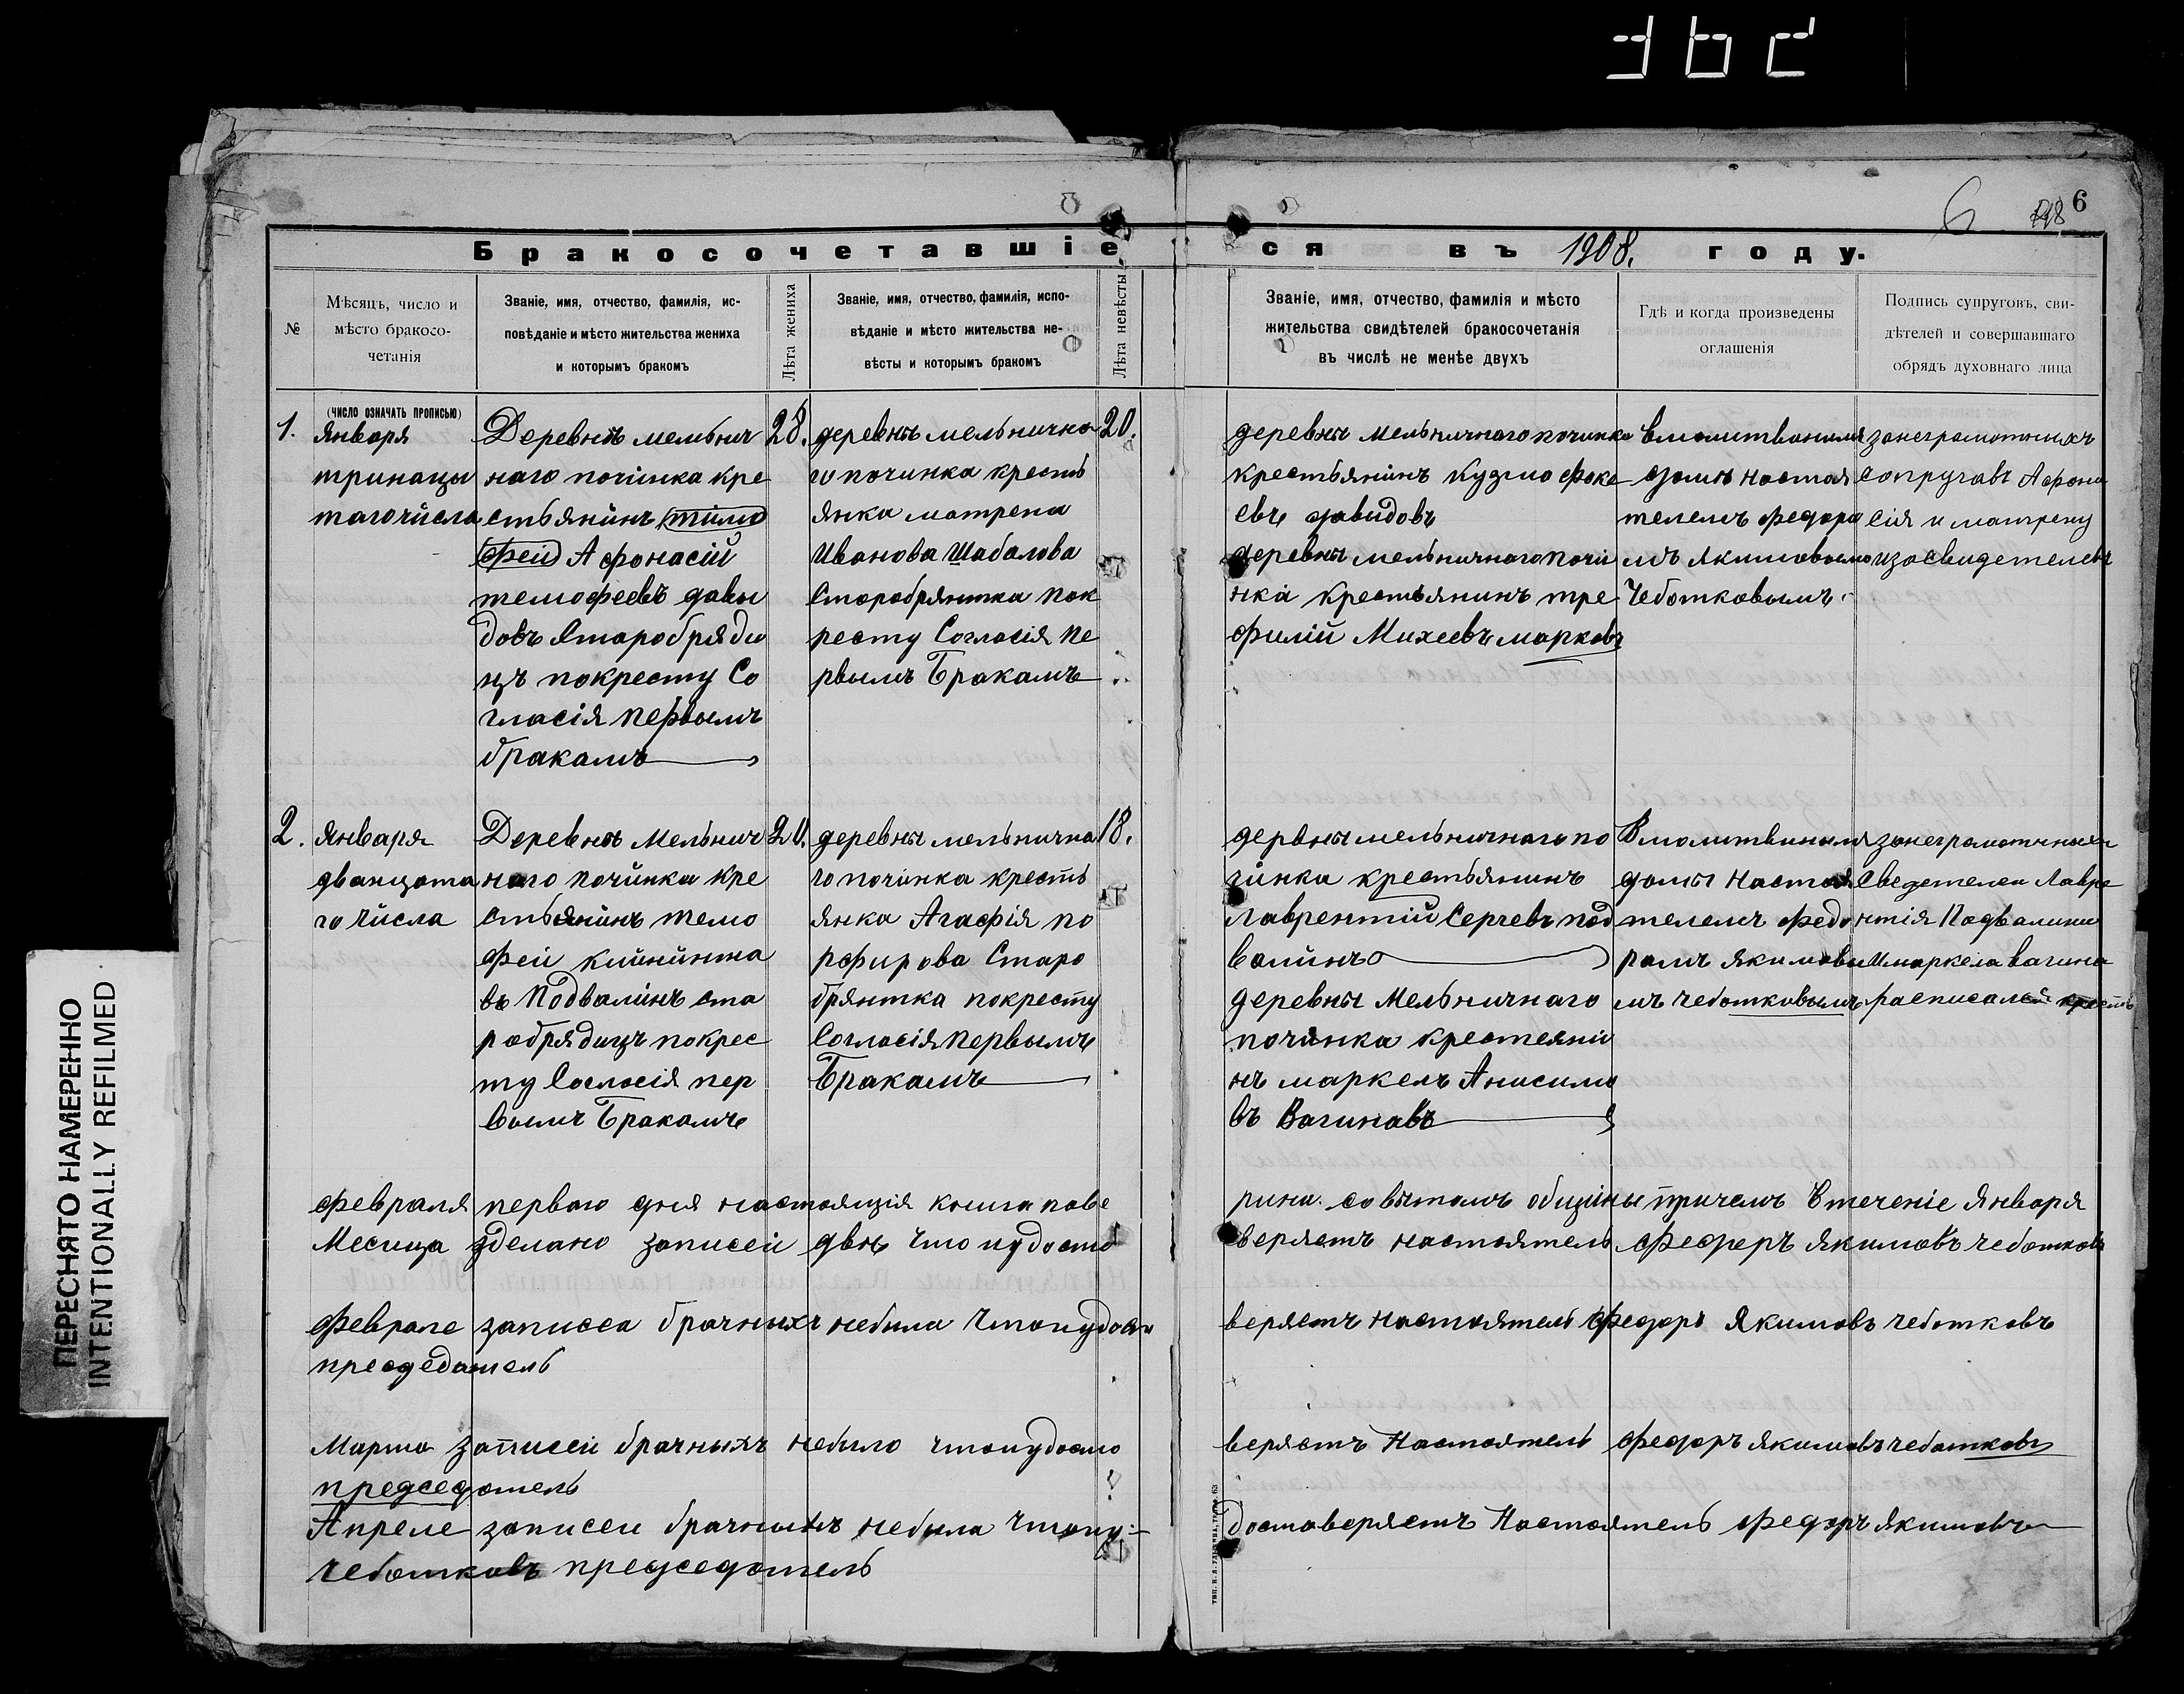 6
6
Бракосочетавшіеся въ 1908. году.
№
Мѣсяцъ, число и
мѣсто бракосо-
четанія
Званіе, имя, отчество, фамилія, ис-
повѣданіе и мѣсто жительства жениха
и которымъ бракомъ
Лѣта жениха
Званіе, имя, отчество, фамилія, испо-
вѣданіе и мѣсто жительства не-
вѣсты и которымъ бракомъ
Лѣта невѣсты
Званіе, имя, отчество, фамилія и мѣсто
жительства свидѣтелей бракосочетанія
въ числѣ не менѣе двухъ
Гдѣ и когда произведены
оглашенія
Подпись супруговъ, сви-
дѣтелей и совершавшаго
обрядъ духовнаго лица
(число означать прописью)
1.
Января
тринацы
таго числа
Деревнѣ мельнич
наго почінка кре
стьянинъ тимо
фей Афонасій
темофеевъ давы
довъ Старобряди
цъ покресту Со
гласія первымъ
бракамъ
28.
деревны мельнична
го починка кресть
янка матрена
Иванова Шабалова
Старобрянтка пок
ресту Согласія пе
рвымъ Бракамъ
20.
деревны Мельничнаго починка
крестьянинъ Кузмо фоке
евъ давидовъ
деревны мельничнаго почи
нка крестьянинъ тре
филій Михеевъ марковъ
вмолитваномъ
домѣ настоя
телемъ федоро
мъ якимовымъ
Чеботковымъ.
занеграмотныхъ
сопруговъ Афона
сія и матрену
изасвидетелевъ
2.
Января
дванцата
го числа
Деревнѣ Мельнич
наго починка кре
стьянинъ темо
фей
въ Подвалинъ ста
робрядицъ покрес
ту Согласія пер
вымъ Бракамъ
20.
деревны мельнична
го починка кресть
янка Агафія по
рфирова Старо
брянтка покресту
Согласія первымъ
Бракамъ
18.
дервны мельничнаго по
чинка крестьянинъ
Лаврентій Сергевъ под
валинъ
деревны Мельничнаго
починка крестеяни
нъ маркелъ Анисимо
въ Вагиновъ
Вмолитвиномъ
домы Настоя
телемъ Федо
ромъ якимовы
мъ чеботковымъ
занеграмотныхъ
Сведетелеи Лавре
нтія Подвалина
Имаркела вагина
расписалсй
февраля первого дня настоящія книга пове
рина. совытомъ общины причемъ втеченіе января
Месица зделано записей двѣ что иудосто
веряетъ настоятель Федоръ якимовъ чеботковъ
феврале записеа брачныхъ небыла Чтоиудосто
веряетъ настоятель Федоръ Якимовъ чеботковъ
преодедатель
Марта записей брачныхъ небыло чтоиудосто
веряетъ Настоятель федоръ якимовъ чеботковъ
председатель
Апреле записеи брачныхъ небыла Чтоиу-
достоверяетъ Настоятель федоръ якимовъ
чеботковъ председатель
ПЕРЕСНЯТО НАМЕРЕННО
INTENTIONALLY REFILMED